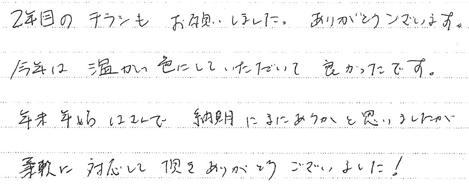 2年目のチラシも お願いしました。ありがとうございます。
今年は 温かい色にしていただいて 良かったです。
年末年始はさんで 納期にまにあうかと思いましたが
柔軟に対応して頂きありがとうございました!